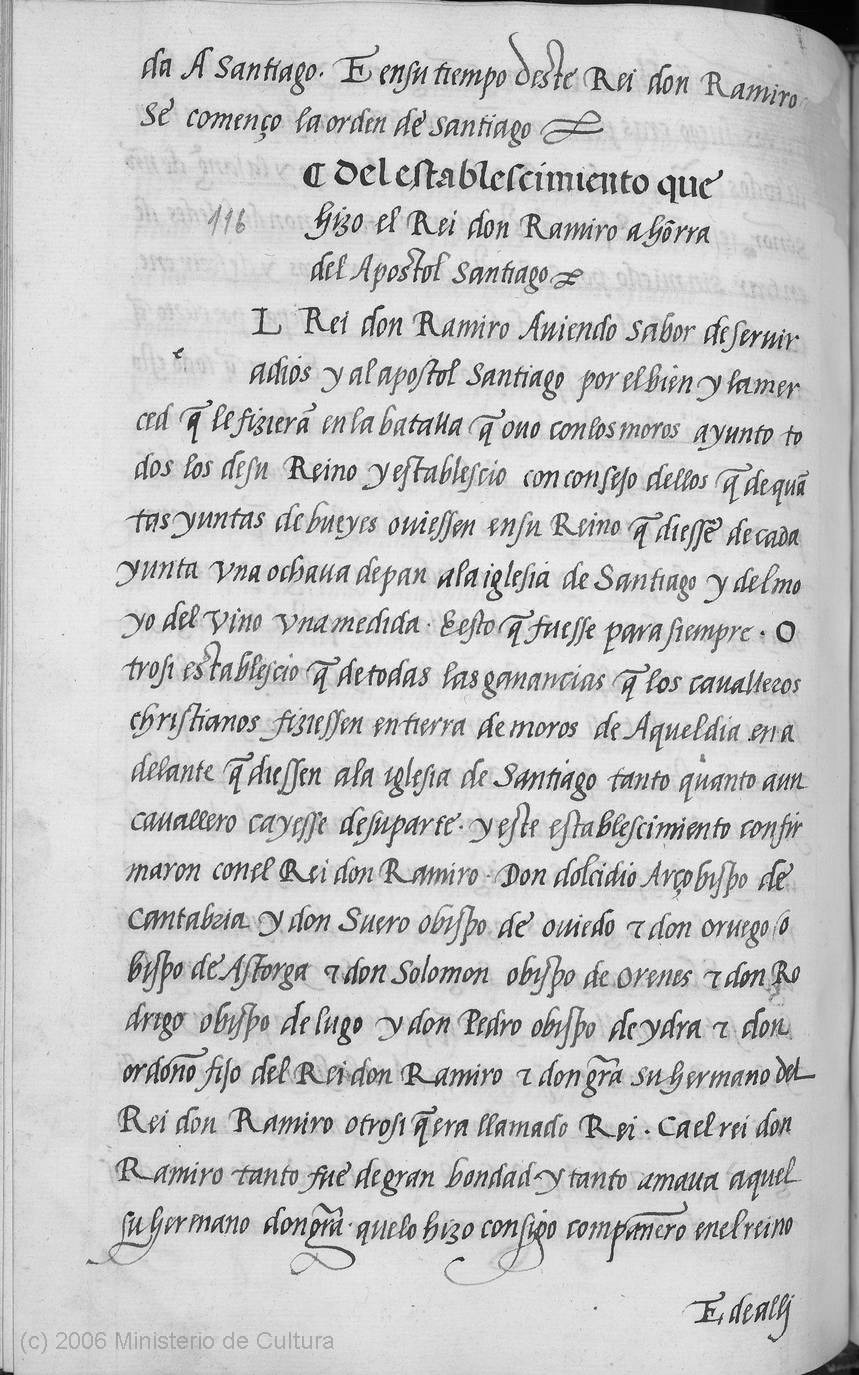 da A Santiago. E en su tiempo deste Rei don Ramiro
Se començo la orden de Santiago
¶ Del establescimiento que
116
hizo el Rei don Ramiro a hõrra
del Apostol Santiago
L Rei don Ramiro Auiendo sabor de seruir
e
a dios y al apostol Santiago por el bien y la mer
ced q̃ le fizierã en la batalla q̃ ouo con los moros ayunto to
dos los de su Reino y establescio con consejo dellos q̃ de quã
tas yuntas de bueyes ouiessen en su Reino q̃ diessẽ de cada
yunta vna ochaua de pan a la iglesia de Santiago y del mo
yo del vino vna medida. E esto q̃ fuesse para siempre. O
trosi establescio q̃ de todas las ganancias q̃ los cavalleros
christianos fiziessen en tierra de moros de Aquel dia en a
delante q̃ diessen a la iglesia de Santiago tanto quanto a un
cavallero cayesse de su parte. y este establescimiento confir
maron con el Rei don Ramiro. Don dolcidio Arçobispo de
Cantabria y don Suero obispo de oviedo ⁊ don oruego o
bispo de Astorga ⁊ don Solomon obispo de Orenes ⁊ don Ro
drigo obispo de lugo y don Pedro obispo de ydra ⁊ don
ordoño fijo del Rei don Ramiro ⁊ don grã su hermano del
Rei don Ramiro otrosi q̃ era llamado Rei. Ca el rei don
Ramiro tanto fue de gran bondad y tanto amaua aquel
su hermano don grã. que lo hizo consigo compañero en el reino
E de alli
(c) 2006 Ministerio de Cultura